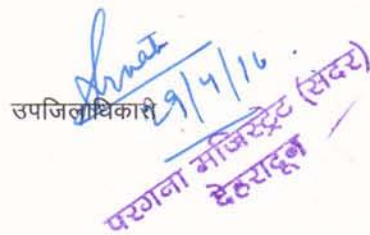 उपजिलाधिकारी
29/4/16
परगना मजिस्ट्रेट (सदर)
देहरादून